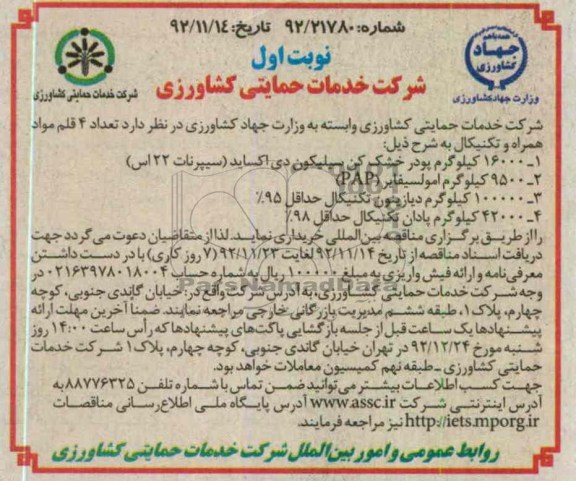 شماره: ۹۲/۲۱۷۸۰ تاریخ: ۹۲/۱۱/۱۴
همه با هم
جهاد
کشاورزی
وزارت جهاد کشاورزی
نوبت اول
شرکت خدمات حمایتی کشاورزی
شرکت خدمات حمایتی کشاورزی
شرکت خدمات حمایتی کشاورزی وابسته به وزارت جهاد کشاورزی در نظر دارد تعداد ۴ قلم مواد
همراه و تکنیکال به شرح ذیل:
۱ــ ۱۶۰۰۰ کیلوگرم پودر خشک کن سیلیکون دی اکساید (سیپرنات ۲۲ اس)
۲ــ ۹۵۰۰ کیلوگرم امولسیفایر (PAP)
۳ــ ۱۰۰۰۰۰ کیلوگرم دیازینون تکنیکال حداقل ۹۵٪
۴ــ ۴۲۰۰۰ کیلوگرم پادان تکنیکال حداقل ۹۸٪
را از طریق برگزاری مناقصه بین المللی خریداری نماید. لذا از متقاضیان دعوت می گردد جهت
دریافت اسناد مناقصه از تاریخ ۹۲/۱۱/۱۴ لغایت ۹۲/۱۱/۲۳ (۷ روز کاری) با در دست داشتن
معرفی نامه و ارائه فیش واریزی به مبلغ ۱۰۰۰۰۰۰ ریال به شماره حساب ۰۲۱۶۳۹۷۸۰۱۸۰۰۴ در
وجه شرکت خدمات حمایتی کشاورزی، به آدرس شرکت واقع در: خیابان گاندی جنوبی، کوچه
چهارم، پلاک ۱، طبقه ششم مدیریت بازرگانی خارجی مراجعه نمایند. ضمنا آخرین مهلت ارائه
پیشنهادها یک ساعت قبل از جلسه بازگشایی پاکت های پیشنهادها که رأس ساعت ۱۴:۰۰ روز
شنبه مورخ ۹۲/۱۲/۲۴ در تهران خیابان گاندی جنوبی، کوچه چهارم، پلاک ۱ شرکت خدمات
حمایتی کشاورزی ــ طبقه نهم کمیسیون معاملات خواهد بود.
جهت کسب اطلاعات بیشتر می توانید ضمن تماس با شماره تلفن ۸۸۷۷۶۳۲۵ به
آدرس اینترنتی شرکت www.assc.ir آدرس پایگاه ملی اطلاع رسانی مناقصات
http://iets.mporg.ir نیز مراجعه فرمایند.
روابط عمومی و امور بین الملل شرکت خدمات حمایتی کشاورزی
ParsNamadData